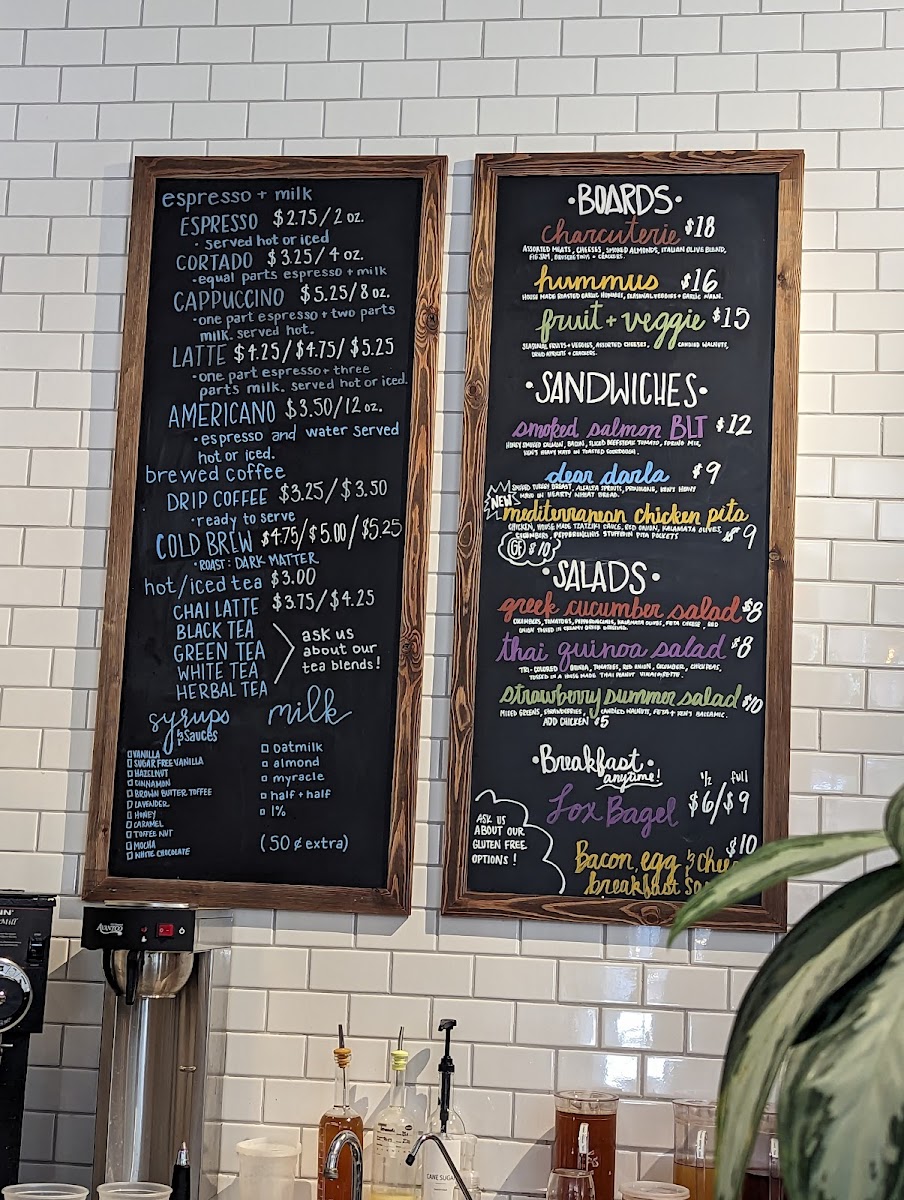 espresso + milk
ESPRESSO $2.75/2 oz.
• served hot or iced
CORTADO $3.25/4 oz.
• equal parts espresso + milk
CAPPUCCINO $5.25/8 oz.
• one part espresso + two parts
milk. served hot.
LATTE $4.25/$4.75/$5.25
• one part espresso + three
parts milk. served hot or iced.
AMERICANO $3.50/12 oz.
• espresso and water served
hot or iced.
brewed coffee
DRIP COFFEE $3.25/$3.50
• ready to serve
COLD BREW $4.75/$5.00/$5.25
• ROAST: DARK MATTER
hot/iced tea $3.00
CHAI LATTE $3.75/$4.25
BLACK TEA
GREEN TEA
WHITE TEA
HERBAL TEA
ask us
about our
tea blends!
syrups
& sauces
VANILLA
SUGAR FREE VANILLA
HAZELNUT
CINNAMON
BROWN BUTTER TOFFEE
LAVENDER
HONEY
CARAMEL
TOFFEE NUT
MOCHA
WHITE CHOCOLATE
milk
oatmilk
almond
myracle
half + half
1%
(50¢ extra)
• BOARDS •
charcuterie $18
ASSORTED MEATS, CHEESES, SMOKED ALMONDS, ITALIAN OLIVE BLEND,
FIG JAM, + CRACKERS.
hummus $16
HOUSE MADE ROASTED GARLIC HUMMUS, SEASONAL VEGGIES + GARLIC NAAN.
fruit + veggie $15
SEASONAL FRUITS + VEGGIES, ASSORTED CHEESES, CANDIED WALNUTS,
DRIED APRICOTS + CRACKERS.
• SANDWICHES •
smoked salmon BLT $12
HONEY SMOKED SALMON, BACON, SLICED BEEFSTEAK TOMATO, SPRING MIX,
KEN'S HEAVY MAYO ON TOASTED SOURDOUGH.
dear darla $9
SMOKED TURKEY BREAST, ALFALFA SPROUTS, PROVOLONE, KEN'S HEAVY
MAYO ON HEARTY WHEAT BREAD.
NEW
mediterranean chicken pita
$9
CHICKEN, HOUSE MADE TZATZIKI SAUCE, RED ONION, KALAMATA OLIVES,
CUCUMBERS, PEPPERONCINIS STUFFED IN PITA POCKETS
GF $10
• SALADS •
greek cucumber salad $8
CUCUMBERS, TOMATOES, PEPPERONCINIS, KALAMATA OLIVES, FETA CHEESE, RED
ONION TOSSED IN CREAMY GREEK DRESSING.
thai quinoa salad $8
TRI-COLORED QUINOA, TOMATOES, RED ONION, CUCUMBER, CHICKPEAS,
TOSSED IN A HOUSE MADE THAI PEANUT VINAIGRETTE.
strawberry summer salad $10
MIXED GREENS, STRAWBERRIES, CANDIED WALNUTS, FETA + KEN'S BALSAMIC.
ADD CHICKEN $5
• Breakfast •
anytime!
1/2 full
Lox Bagel $6/$9
ASK US
ABOUT OUR
GLUTEN FREE
OPTIONS!
$10
Bacon, egg &
breakfast
AVANTCO
CANE SUGAR